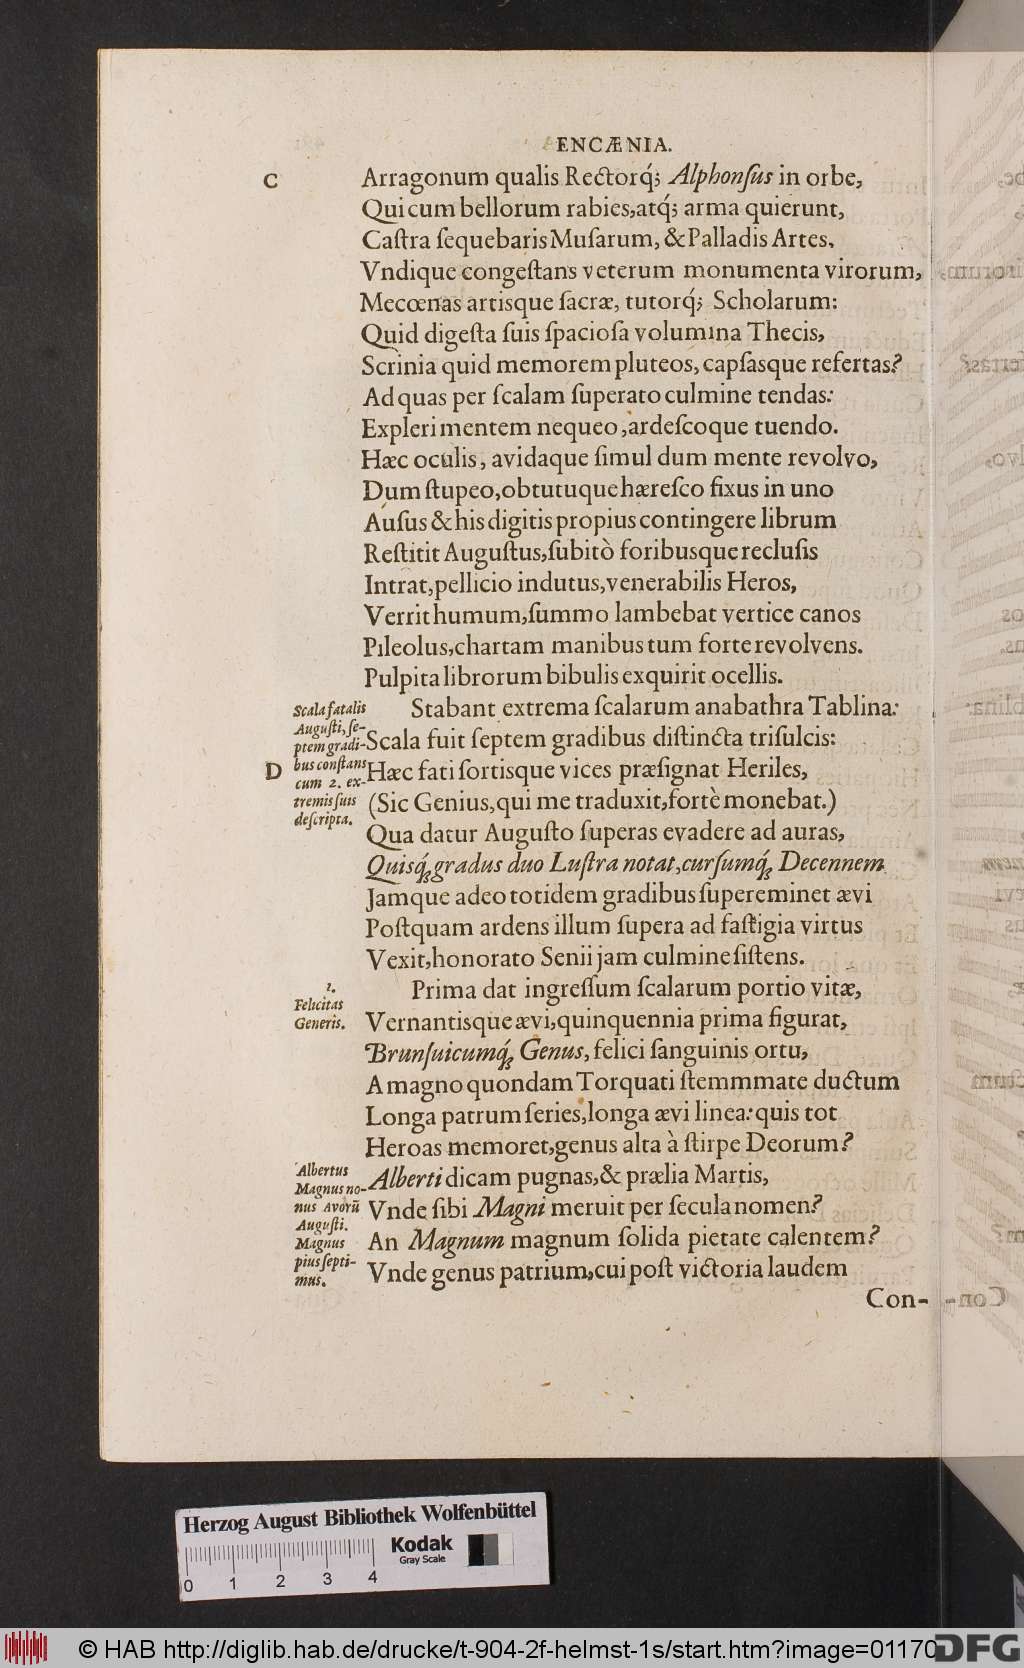 ENCÆNIA.
C Arragonum qualis Rectorq́; Alphonſus in orbe,
Qui cum bellorum rabies, atq́; arma quierunt,
Caſtra ſequebaris Muſarum, & Palladis Artes,
Vndique congeſtans veterum monumenta virorum,
Mecœnas artisque ſacræ, tutorq́; Scholarum:
Quid digeſta ſuis ſpacioſa volumina Thecis,
Scrinia quid memorem pluteos, capſasque refertas?
Ad quas per ſcalam ſuperato culmine tendas:
Expleri mentem nequeo, ardeſcoque tuendo.
Hæc oculis, avidaque ſimul dum mente revolvo,
Dum ſtupeo, obtutuque hæreſco fixus in uno
Auſus & his digitis propius contingere librum
Reſtitit Auguſtus, ſubitò foribusque recluſis
Intrat, pellicio indutus, venerabilis Heros,
Verrit humum, ſummo lambebat vertice canos
Pileolus, chartam manibus tum forte revolvens.
Pulpita librorum bibulis exquirit ocellis.
Scala fatalis
Auguſti, ſe-
ptem gradi-
bus conſtans
cum 2. ex-
tremis ſuis
deſcripta.
Stabant extrema ſcalarum anabathra Tablina:
Scala fuit ſeptem gradibus diſtincta triſulcis:
D Hæc fati ſortisque vices præſignat Heriles,
(Sic Genius, qui me traduxit, fortè monebat.)
Qua datur Auguſto ſuperas evadere ad auras,
Quisq́; gradus duo Luſtra notat, curſumq́; Decennem
Jamque adeo totidem gradibus ſupereminet ævi
Poſtquam ardens illum ſupera ad faſtigia virtus
Vexit, honorato Senii jam culmine ſiſtens.
1.
Felicitas
Generis.
Prima dat ingreſſum ſcalarum portio vitæ,
Vernantisque ævi, quinquennia prima figurat,
Brunſuicumq́; Genus, felici ſanguinis ortu,
A magno quondam Torquati ſtemmmate ductum
Longa patrum ſeries, longa ævi linea: quis tot
Heroas memoret, genus alta à ſtirpe Deorum?
Albertus
Magnus no-
nus Avorū
Auguſti.
Magnus
pius ſepti-
mus.
Alberti dicam pugnas, & prælia Martis,
Vnde ſibi Magni meruit per ſecula nomen?
An Magnum magnum ſolida pietate calentem?
Vnde genus patrium, cui poſt victoria laudem
Con-
Herzog August Bibliothek Wolfenbüttel
Kodak
Gray Scale
0 1 2 3 4
© HAB http://diglib.hab.de/drucke/t-904-2f-helmst-1s/start.htm?image=01170
DFG